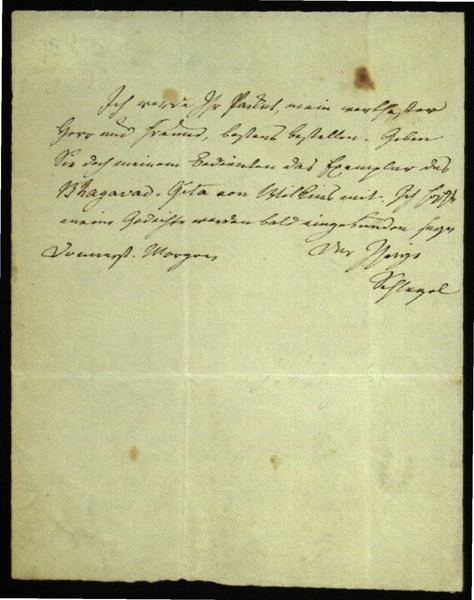 Ich werde Ihr Packet, mein werthester
Herr und Freund, bestens bestellen. Geben
Sie doch meinem Bedienten das Exemplar des
Bhagavad-Gita von Wilkins mit. Ich hoffe
meine Gedichte werden bald eingebunden seyn.
Donnerst. Morgen Der Ihrige
Schlegel